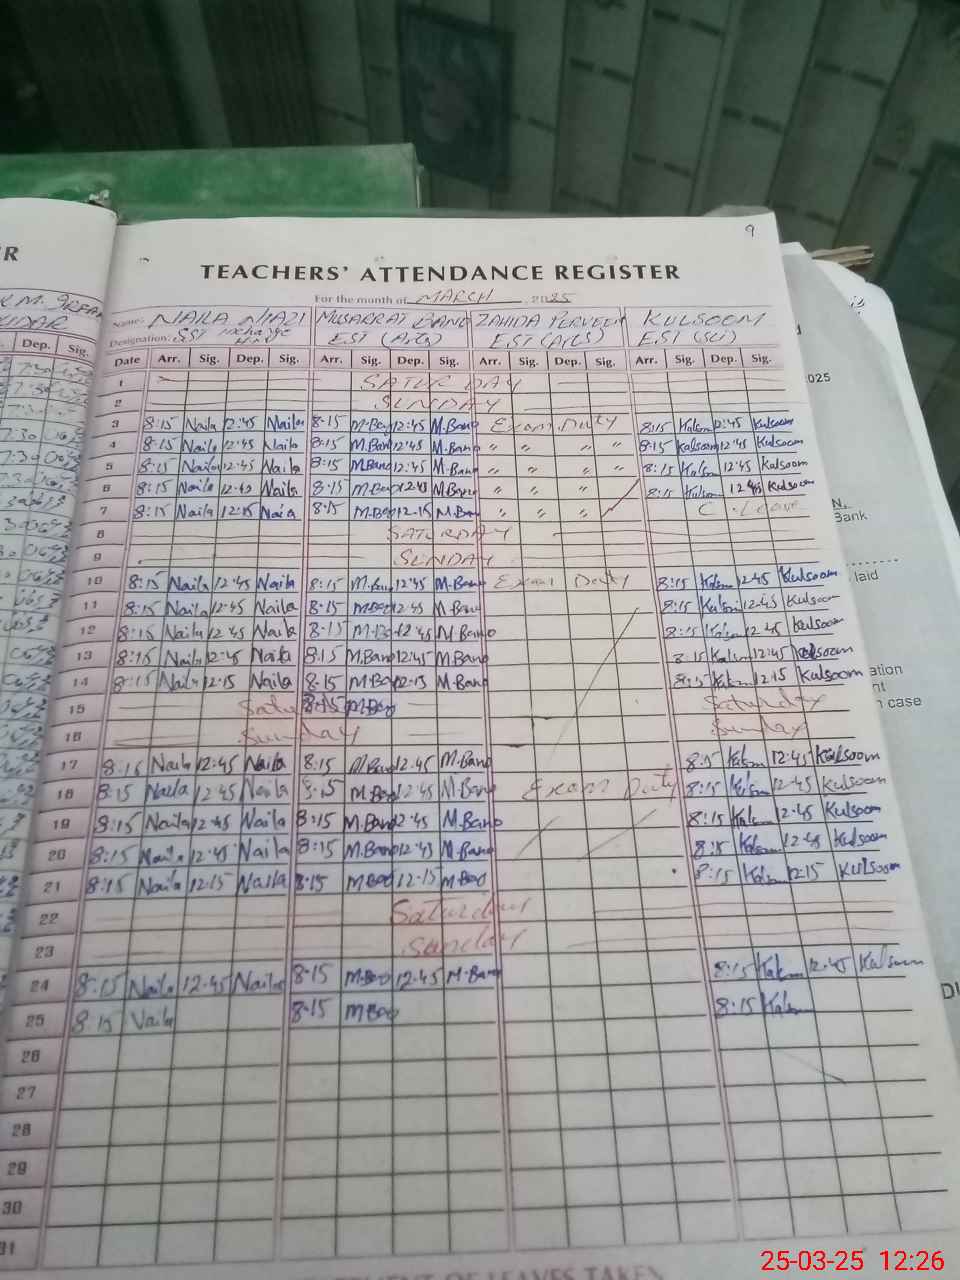 9
TEACHERS' ATTENDANCE REGISTER
For the month of MARCH 2025
Name: NAILA NIAZI MUSARRAT BANO ZAHIDA PERVEEN KULSOOM
Designation: SST EST (Arts) EST (Arts) EST (Sci)
Date Arr. Sig. Dep. Sig. Arr. Sig. Dep. Sig. Arr. Sig. Dep. Sig. Arr. Sig. Dep. Sig.
1 SATURDAY
2 SUNDAY
3 8:15 Naila 12:45 Naila 8:15 M.Bano 12:45 M.Bano Exam Duty 8:15 Kulsoom 12:45 Kulsoom
4 8:15 Naila 12:45 Naila 8:15 M.Bano 12:45 M.Bano " " " " 8:15 Kulsoom 12:45 Kulsoom
5 8:15 Naila 12:45 Naila 8:15 M.Bano 12:45 M.Bano " " " " 8:15 Kulsoom 12:45 Kulsoom
6 8:15 Naila 12:45 Naila 8:15 M.Bano 12:45 M.Bano " " " 8:15 Kulsoom 12:45 Kulsoom
7 8:15 Naila 12:15 Naila 8:15 M.Bano 12:15 M.Bano " " " C. Leave
8 SATURDAY
9 SUNDAY
10 8:15 Naila 12:45 Naila 8:15 M.Bano 12:45 M.Bano Exam Duty 8:15 Kulsoom 12:45 Kulsoom
11 8:15 Naila 12:45 Naila 8:15 M.Bano 12:45 M.Bano 8:15 Kulsoom 12:45 Kulsoom
12 8:15 Naila 12:45 Naila 8:15 M.Bano 12:45 M.Bano 8:15 Kulsoom 12:45 Kulsoom
13 8:15 Naila 12:45 Naila 8:15 M.Bano 12:45 M.Bano 8:15 Kulsoom 12:45 Kulsoom
14 8:15 Naila 12:15 Naila 8:15 M.Bano 12:15 M.Bano 8:15 Kulsoom 12:15 Kulsoom
15 Saturday 8:15 M.Bano Saturday
16 Sunday Sunday
17 8:15 Naila 12:45 Naila 8:15 M.Bano 12:45 M.Bano 8:15 Kulsoom 12:45 Kulsoom
18 8:15 Naila 12:45 Naila 8:15 M.Bano 12:45 M.Bano Exam Duty 8:15 Kulsoom 12:45 Kulsoom
19 8:15 Naila 12:45 Naila 8:15 M.Bano 12:45 M.Bano 8:15 Kulsoom 12:45 Kulsoom
20 8:15 Naila 12:45 Naila 8:15 M.Bano 12:45 M.Bano 8:15 Kulsoom 12:45 Kulsoom
21 8:15 Naila 12:15 Naila 8:15 M.Bano 12:15 M.Bano 8:15 Kulsoom 12:15 Kulsoom
22 Saturday
23 Sunday
24 8:15 Naila 12:45 Naila 8:15 M.Bano 12:45 M.Bano 8:15 Kulsoom 12:45 Kulsoom
25 8:15 Naila 8:15 M.Bano 8:15 Kulsoom
26
27
28
29
30
31
OF LEAVES TAKEN
25-03-25 12:26